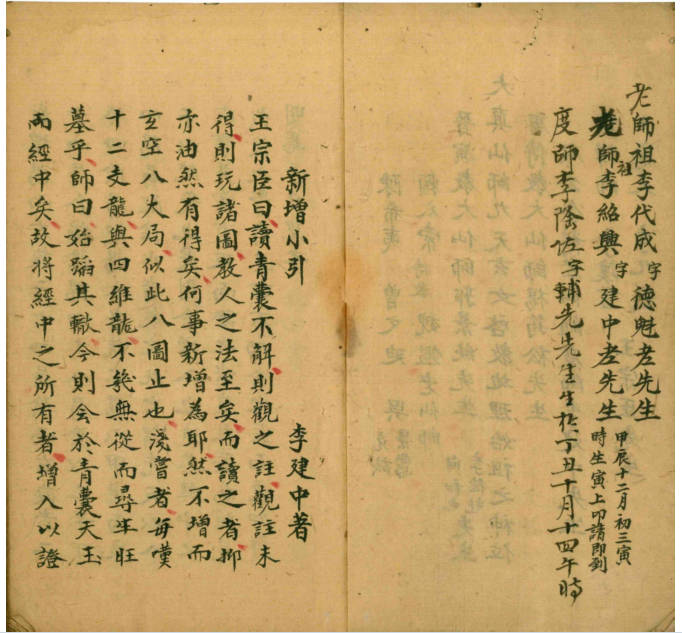 老師祖李代成字德魁老先生
老師祖李紹興字建中老先生
甲辰十二月初三寅
時生寅上叩請即到
度師李隂佐字輔先先生生於丁丑十月十四午時
新增小引 李建中著
王宗臣曰讀青囊不解則觀之註觀註未
得則玩諸圖教人之法至矣而讀之者抑
亦油然有得矣何事新增為耶然不增而
玄空八大局似此八圖止也淺嘗者每嘆
十二支龍與四維龍不幾無從而尋生旺
墓乎師曰始蹈其轍今則會於青囊天玉
兩經中矣故將經中之所有者增入以證